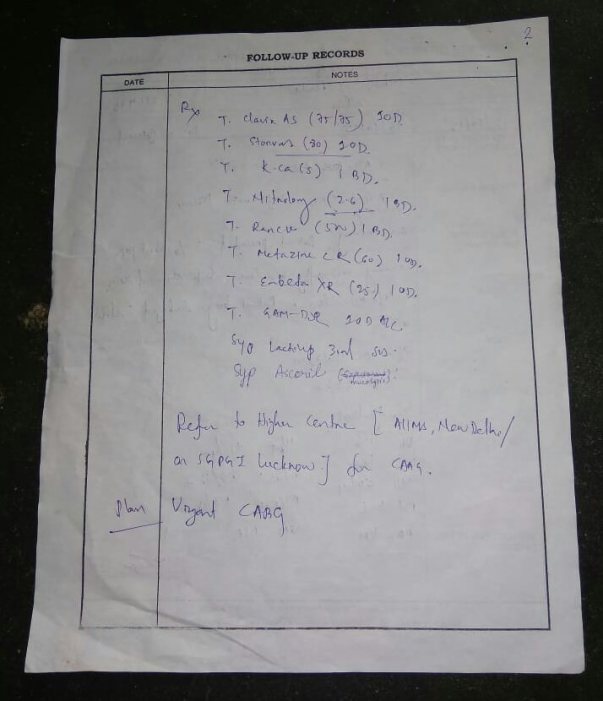 2
FOLLOW-UP RECORDS
DATE NOTES
Rx T. Clavix AS (75/75) 1OD
T. Storvas (80) 1OD.
T. K-Cor (5) 1 BD.
T. (2.6) 1 BD.
T. (500) 1 BD.
T. Metazine CR (60) 1 OD.
T. Embeta XR (25) 1 OD.
T. GAM-DSR 1OD AC.
Syp 3ml
Syp Ascoril
Refer to Higher Centre [AIIMS, New Delhi/
or SGPGI Lucknow] for CABG.
Plan Urgent CABG